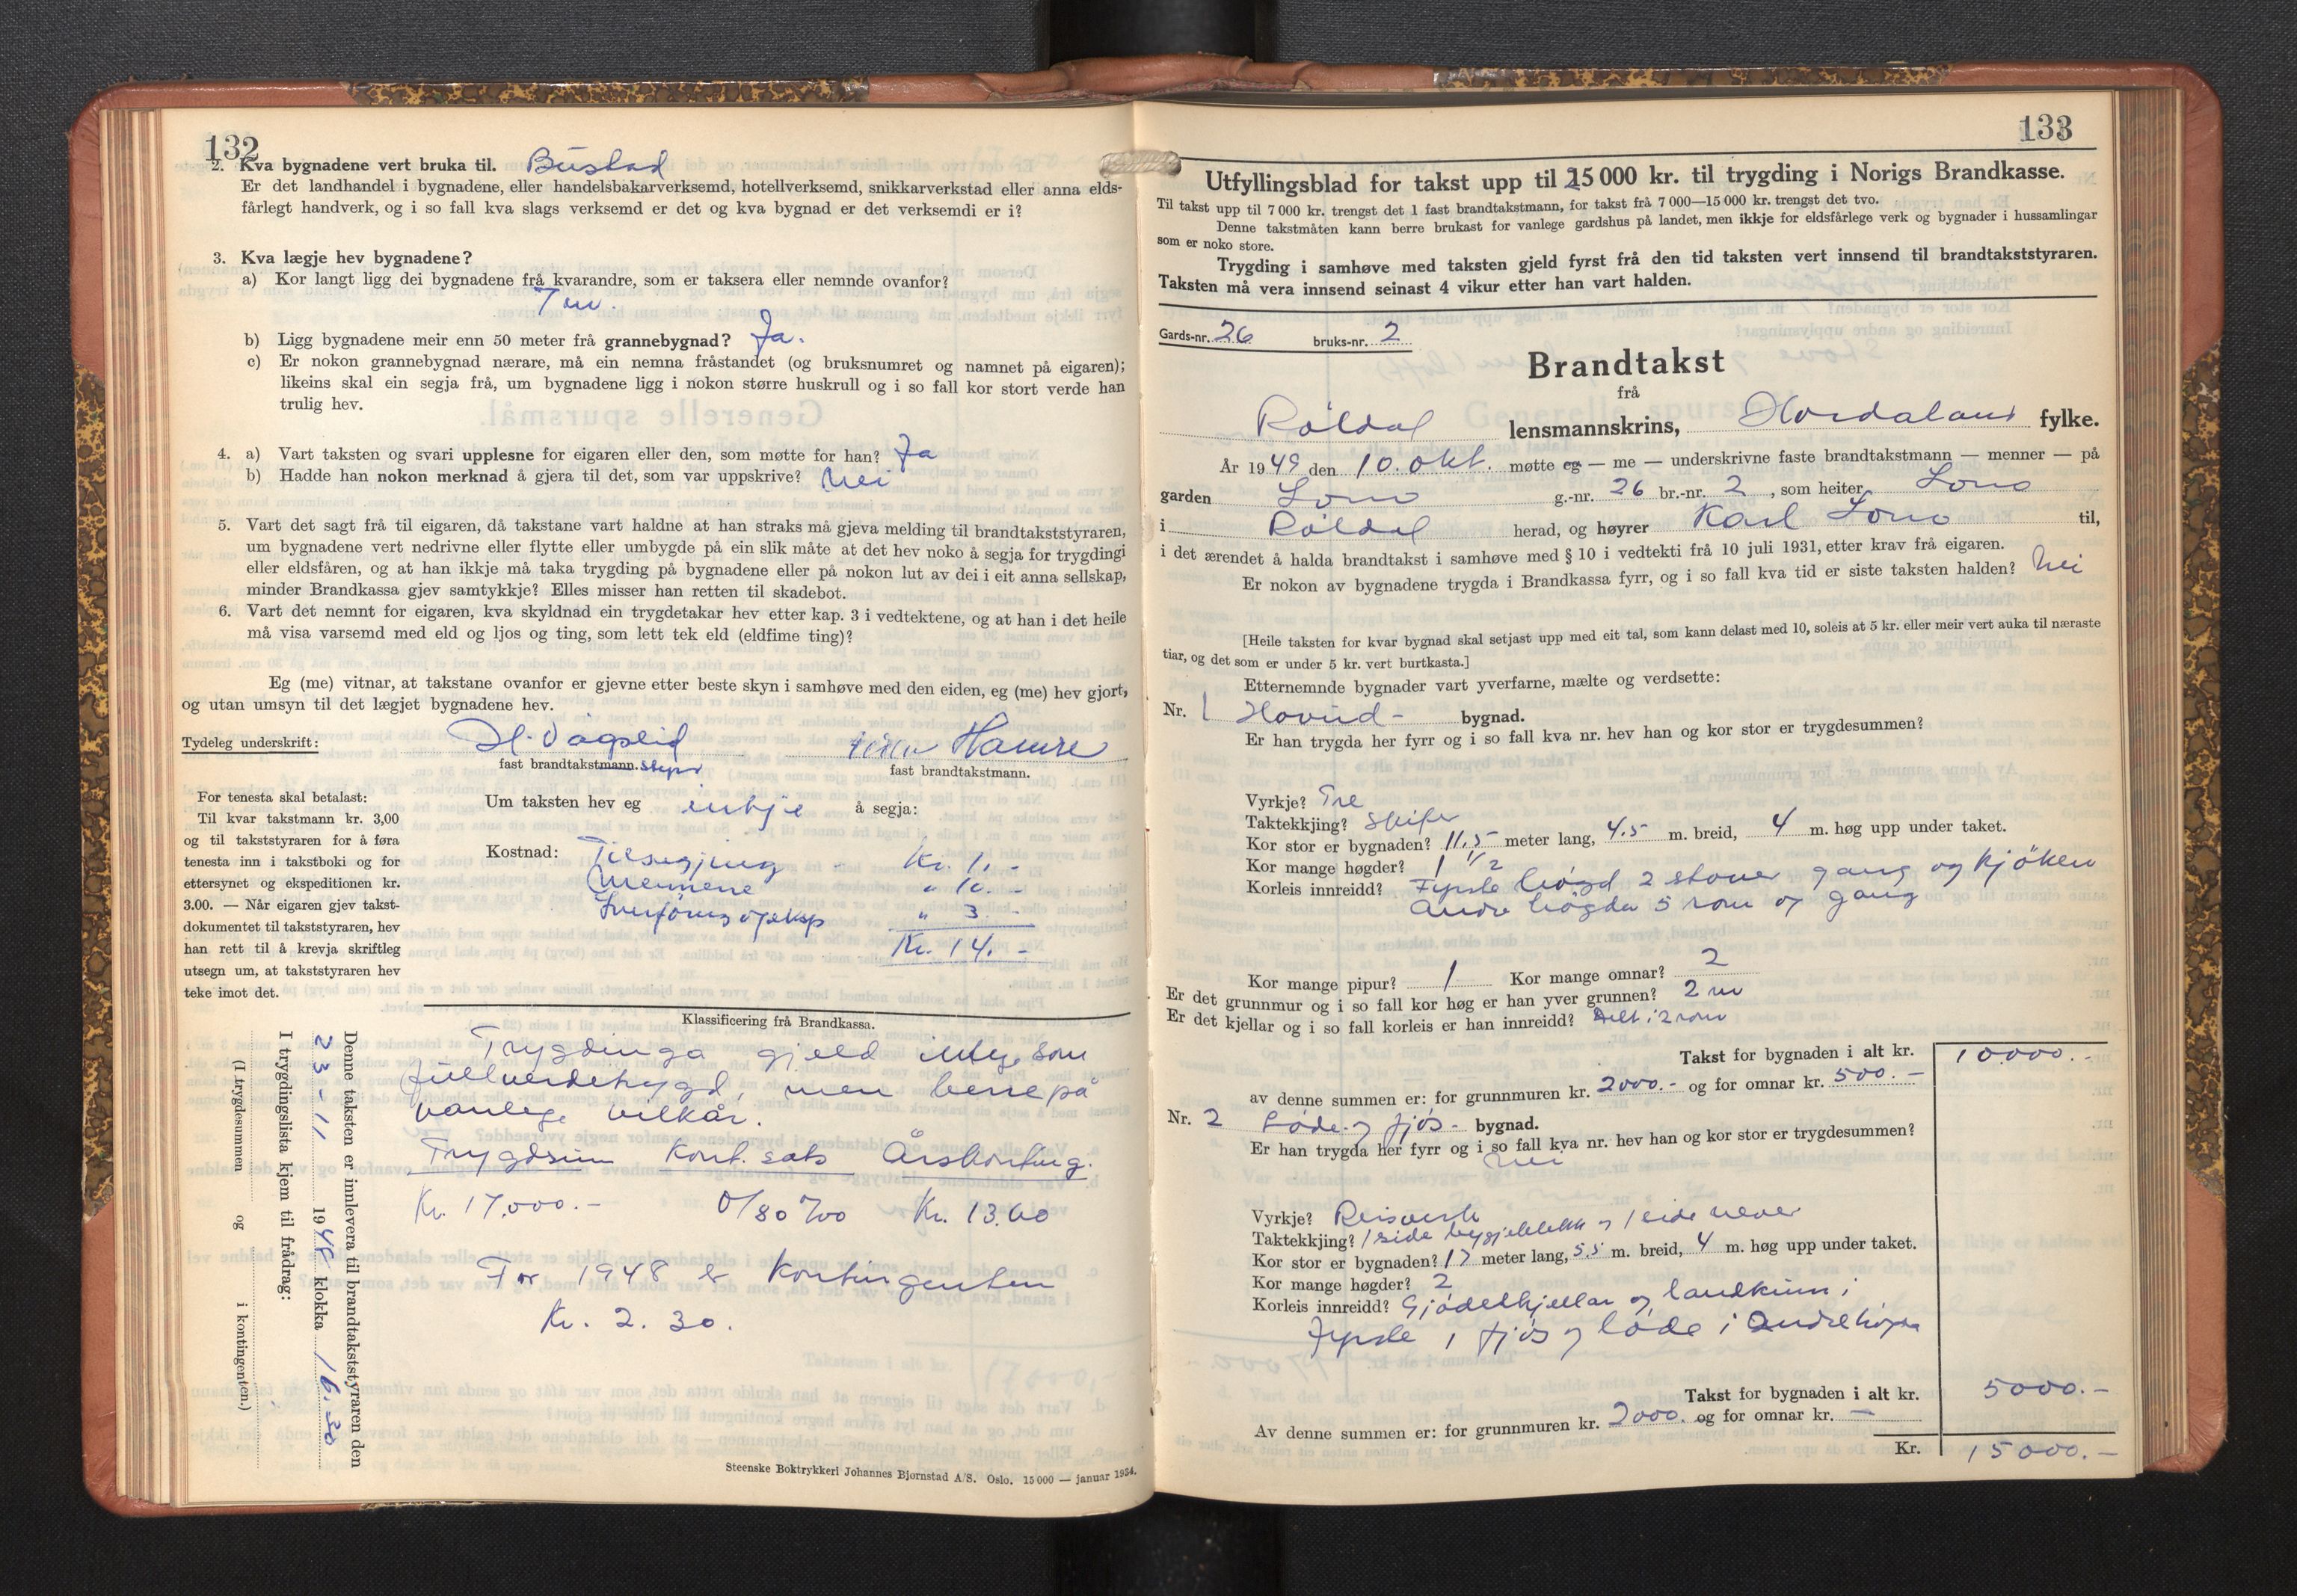 132
2. Kva bygnadene vert bruka til. Bustad
Er det landhandel i bygnadene, eller handelsbakarverksemd, hotellverksemd, snikkarverkstad eller anna elds-
fårlegt handverk, og i so fall kva slags verksemd er det og kva bygnad er det verksemdi er i?
3. Kva lægje hev bygnadene?
a) Kor langt ligg dei bygnadene frå kvarandre, som er taksera eller nemnde ovanfor?
7 m.
b) Ligg bygnadene meir enn 50 meter frå grannebygnad? Ja.
c) Er nokon grannebygnad nærare, må ein nemna fråstandet (og bruksnumret og namnet på eigaren);
likeins skal ein segja frå, um bygnadene ligg i nokon større huskrull og i so fall kor stort verde han
trulig hev.
4. a) Vart taksten og svari upplesne for eigaren eller den, som møtte for han? Ja
b) Hadde han nokon merknad å gjera til det, som var uppskrive? Nei
5. Vart det sagt frå til eigaren, då takstane vart haldne at han straks må gjeva melding til brandtakststyraren,
um bygnadene vert nedrivne eller flytte eller umbygde på ein slik måte at det hev noko å segja for trygdingi
eller eldsfåren, og at han ikkje må taka trygding på bygnadene eller på nokon lut av dei i eit anna sellskap,
minder Brandkassa gjev samtykkje? Elles misser han retten til skadebot.
6. Vart det nemnt for eigaren, kva skyldnad ein trygdetakar hev etter kap. 3 i vedtektene, og at han i det heile
må visa varsemd med eld og ljos og ting, som lett tek eld (eldfime ting)?
Eg (me) vitnar, at takstane ovanfor er gjevne etter beste skyn i samhøve med den eiden, eg (me) hev gjort,
og utan umsyn til det lægjet bygnadene hev.
Tydeleg underskrift: H. Vågslid Hamre
fast brandtakstmann. fast brandtakstmann.
For tenesta skal betalast:
Til kvar takstmann kr. 3,00
og til takststyraren for å føra
tenesta inn i takstboki og for
ettersynet og ekspeditionen kr.
3.00. — Når eigaren gjev takst-
dokumentet til takststyraren, hev
han rett til å krevja skriftleg
utsegn um, at takststyraren hev
teke imot det.
Um taksten hev eg inkje å segja:
Kostnad: Tilsegjing - Kr. 1. -
Mennene " 10. -
Innføring og eksp " 3 -
Kr. 14. -
Klassificering frå Brandkassa.
Trygdinga gjeld ikkje som
fullverdetrygd, men berre på
vanlege vilkår.
Trygdsum Kont. sats Årskonting.
Kr. 17.000.- 0/80 ‰ Kr. 13.60
For 1948 er kontingenten
Kr. 2.30.
Denne taksten er innlevera til brandtakststyraren den
23-11 1948 klokka 16.30
I trygdingslista kjem til frådrag:
(I trygdesummen og i kontingenten.)
Steenske Boktrykkeri Johannes Bjørnstad A/S. Oslo. 15 000 — januar 1934.
133
Utfyllingsblad for takst upp til 25 000 kr. til trygding i Norigs Brandkasse.
Til takst upp til 7 000 kr. trengst det 1 fast brandtakstmann, for takst frå 7 000—15 000 kr. trengst det tvo.
Denne takstmåten kann berre brukast for vanlege gardshus på landet, men ikkje for eldsfårlege verk og bygnader i hussamlingar
som er noko store.
Trygding i samhøve med taksten gjeld fyrst frå den tid taksten vert innsend til brandtakststyraren.
Taksten må vera innsend seinast 4 vikur etter han vart halden.
Gards-nr. 26 bruks-nr. 2
Brandtakst
frå
Röldal lensmannskrins, Hordaland fylke.
År 1949 den 10. okt. møtte eg — me — underskrivne faste brandtakstmann — menner — på
garden Lono g.-nr. 26 br.-nr. 2, som heiter Lono
i Röldal herad, og høyrer Karl Lono til,
i det ærendet å halda brandtakst i samhøve med § 10 i vedtekti frå 10 juli 1931, etter krav frå eigaren.
Er nokon av bygnadene trygda i Brandkassa fyrr, og i so fall kva tid er siste taksten halden? Nei
[Heile taksten for kvar bygnad skal setjast upp med eit tal, som kann delast med 10, soleis at 5 kr. eller meir vert auka til næraste
tiar, og det som er under 5 kr. vert burtkasta.]
Etternemnde bygnader vart yverfarne, mælte og verdsette:
Nr. 1 Hovud- bygnad.
Er han trygda her fyrr og i so fall kva nr. hev han og kor stor er trygdesummen?
Vyrkje? Tre
Taktekkjing? Skifer
Kor stor er bygnaden? 11,5 meter lang, 4.5 m. breid, 4 m. høg upp under taket.
Kor mange høgder? 1 1/2
Korleis innreidd? Fyrste högd 2 stover gang og kjöken
Andre högda 5 rom og gang
Kor mange pipur? 1 Kor mange omnar? 2
Er det grunnmur og i so fall kor høg er han yver grunnen? 2 m
Er det kjellar og i so fall korleis er han innreidd? Delt i 2 rom
Takst for bygnaden i alt kr. 10.000.-
av denne summen er: for grunnmuren kr. 2000.- og for omnar kr. 500.-
Nr. 2 Löde- og fjös- bygnad.
Er han trygda her fyrr og i so fall kva nr. hev han og kor stor er trygdesummen?
Nei
Vyrkje? Reisverk
Taktekkjing? 1 side bygjeblekk og 1 side never
Kor stor er bygnaden? 17 meter lang, 5.5 m. breid, 4 m. høg upp under taket.
Kor mange høgder? 2
Korleis innreidd? Gjödelkjellar og landkum i
fyrste, fjös og löde i andre högda
Takst for bygnaden i alt kr. 5000.-
Av denne summen er: for grunnmuren kr. 2000. og for omnar kr. —
Kr. 15000.-